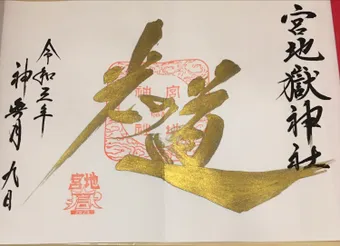 宮地嶽神社
光道
令和三年
神無月 九日
宮地嶽